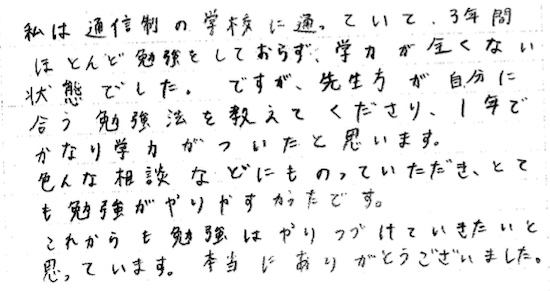 私は通信制の学校に通っていて、3年間
ほとんど勉強をしておらず、学力が全くない
状態でした。ですが、先生方が自分に
合う勉強法を教えてくださり、1年で
かなり学力がついたと思います。
色んな相談などにものっていただき、とて
も勉強がやりやすかったです。
これからも勉強はやりつづけていきたいと
思っています。本当にありがとうございました。